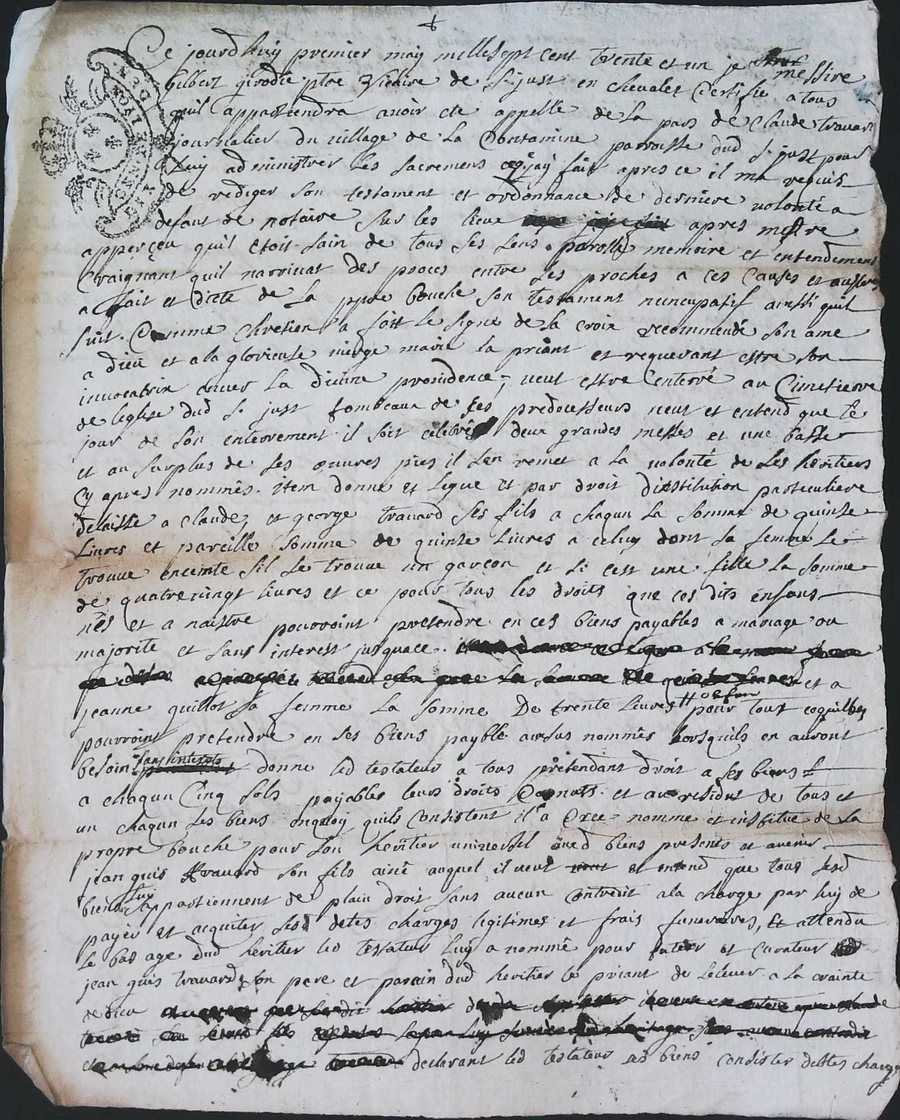 Ce jourdhuy premier may mille sept cent trente et un je messire
Gilbert girodie ptre viquere de St just en chevalet Certifie a tous
quil appartiendra avoir ete appellé de la part de Claude travard
journalier du village de La Contamine paroisse dud St just pour
Luy administrer les sacremens ce q'jay fait apres ce il ma requis
de rediger son testament et ordonnance de derniere volonté a
defaut de notaire sur les lieux apres mestre
apperçeu quil etoit sain de tous ses sens parolle memoire et entendement
Craignant quil narrivat des proces entre ses proches a ces Causes et autres
a fait et dicté de sa ppre bouche son testament nuncupatif ainsi quil
suit. Comme Chretien a fait le signe de la croix recommendé son ame
a dieu et a la glorieuse vierge marie la priant et requerant estre son
invocatrix envers la divine providence, veut estre enterré au Cimetierre
de leglise dud St just tombeaux de ses predecesseurs veut et entend que le
jour de son enterrement il soit celebré deux grandes messes et une basse
et au surplus de ses œuvres pies il sen remet a la volonté de ses heritiers
cy apres nommés. item donne et legue et par droit dinstitution particuliere
delaisse a Claude, et george travard ses fils a chaqun la somme de quinse
Livres et pareille somme de quinse Livres a celuy dont sa femme se
trouve enceinte sil se trouve un garçon et si cest une fille la somme
de quatrevingt livres et ce pour tous les droits que ces dits enfans
nés et a naistre pourroint pretendre en ces biens payables a mariage ou
majorité et sans interest jusquace.
et a
jeanne guillot sa femme la somme De trente Livres pour tout cequilbey
pourroint pretendre en ses biens payable aussus nommés lorsquils en auront
besoin sans interests donne led testateur a tous pretendant droit a ses biens
a chaqun Cinq sols payables leurs droits Connuts. et au residut de tous et
un chaqun ses biens enquoy quils consistent il a Cree nommé et institué de sa
propre bouche pour son heritier universel biens presents et avenir
jean guis travard son fils ainé auquel il veut et entend que tous sesd
biens luy appartiennent de plain droit sans aucun contredit a la charge par luy de
payer et acquiter sesd detes charges legitimes et frais funeraires, et attendu
le bas age dud heritier led testateur luy a nommé pour tuteur et Curateur
jean guis travard son pere et parain dud heritier le priant de lelever a la crainte
de dieu
declarant led testateur ses biens consister debtes charges